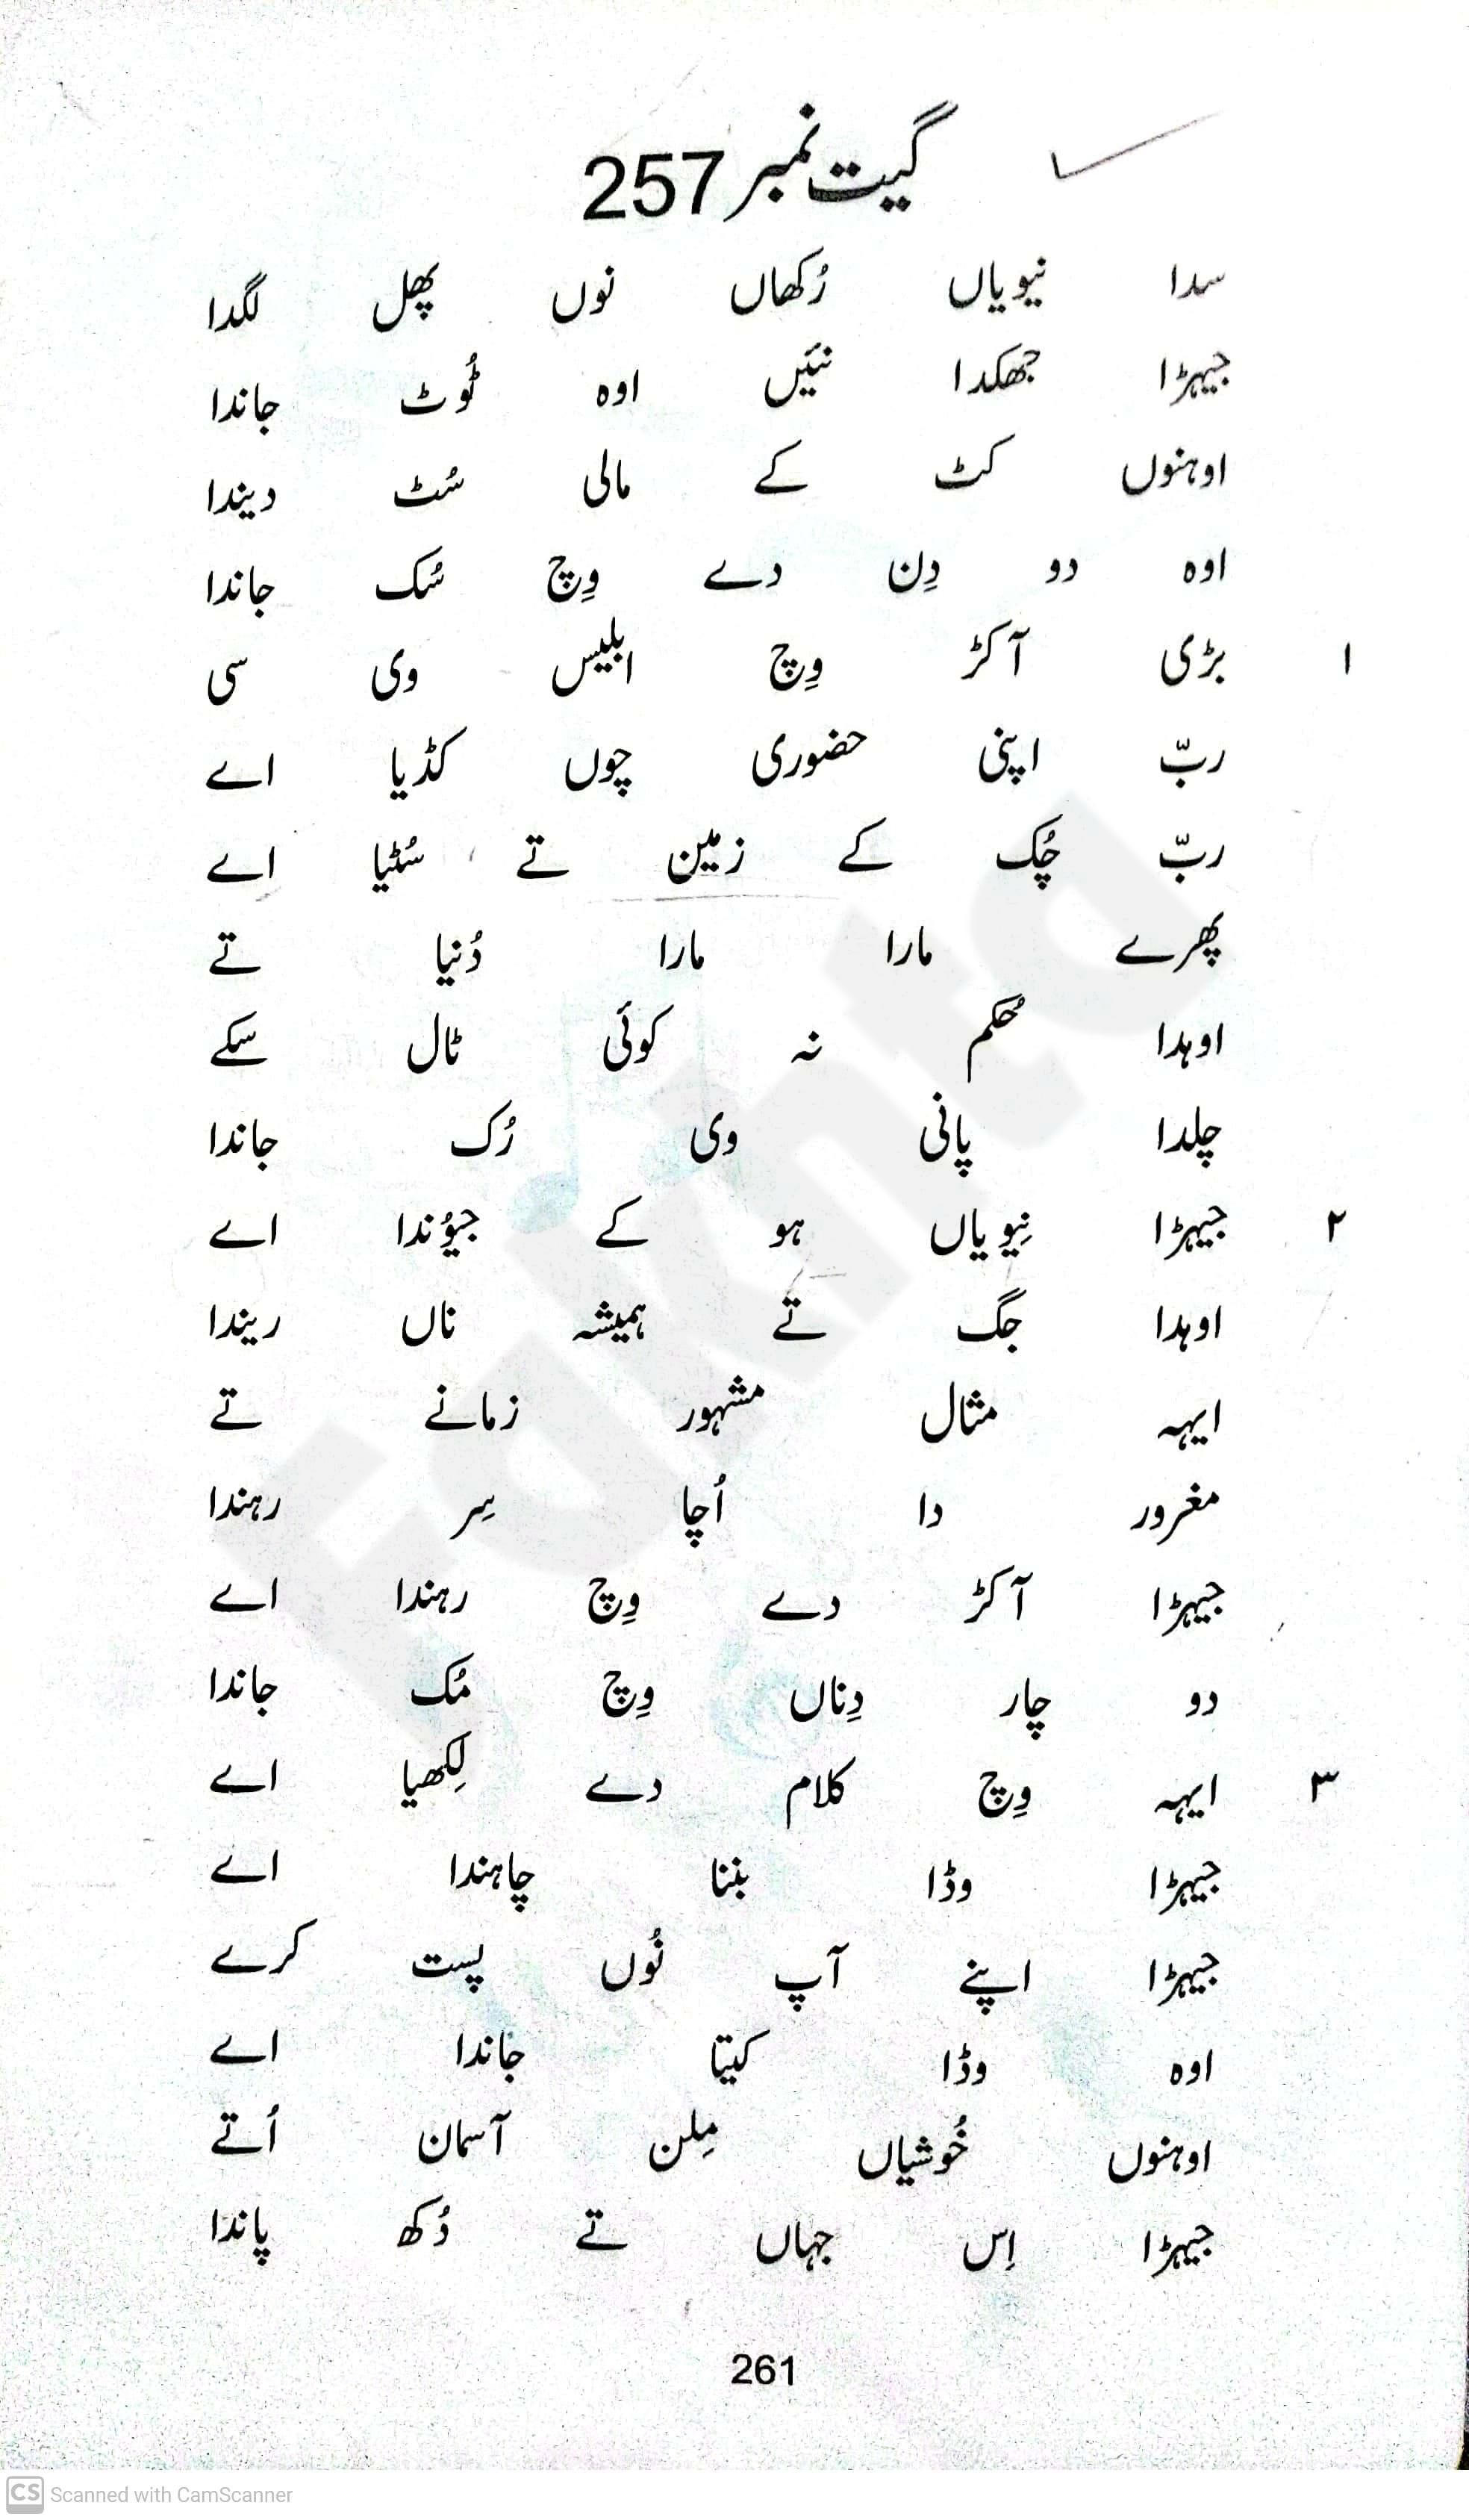 گیت نمبر 257
سدا نیویاں رُکھاں نوں پھل لگدا
جیہڑا جھکدا نئیں اوہ ٹُوٹ جاندا
اوہنوں کٹ کے مالی سُٹ دیندا
اوہ دو دِن دے وِچ سُک جاندا
۱ بڑی آکڑ وِچ ابلیس وی سی
ربّ اپنی حضوری چوں کڈیا اے
ربّ چُک کے زمین تے سُٹیا اے
پھرے مارا مارا دُنیا تے
اوہدا حُکم نہ کوئی ٹال سکے
چلدا پانی وی رُک جاندا
۲ جیہڑا نِیویاں ہو کے جیوُندا اے
اوہدا جگ تے ہمیشہ ناں ریندا
ایہہ مثال مشہور زمانے تے
مغرور دا اُچا سِر رہندا
جیہڑا آکڑ دے وِچ رہندا اے
دو چار دِناں وِچ مُک جاندا
۳ ایہہ وِچ کلام دے لِکھیا اے
جیہڑا وڈا بننا چاہندا اے
جیہڑا اپنے آپ نُوں پست کرے
اوہ وڈا کیتا جاندا اے
اوہنوں خُوشیاں مِلن آسمان اُتے
جیہڑا اِس جہاں تے دُکھ پاندا
261
CS Scanned with CamScanner
Fakhta